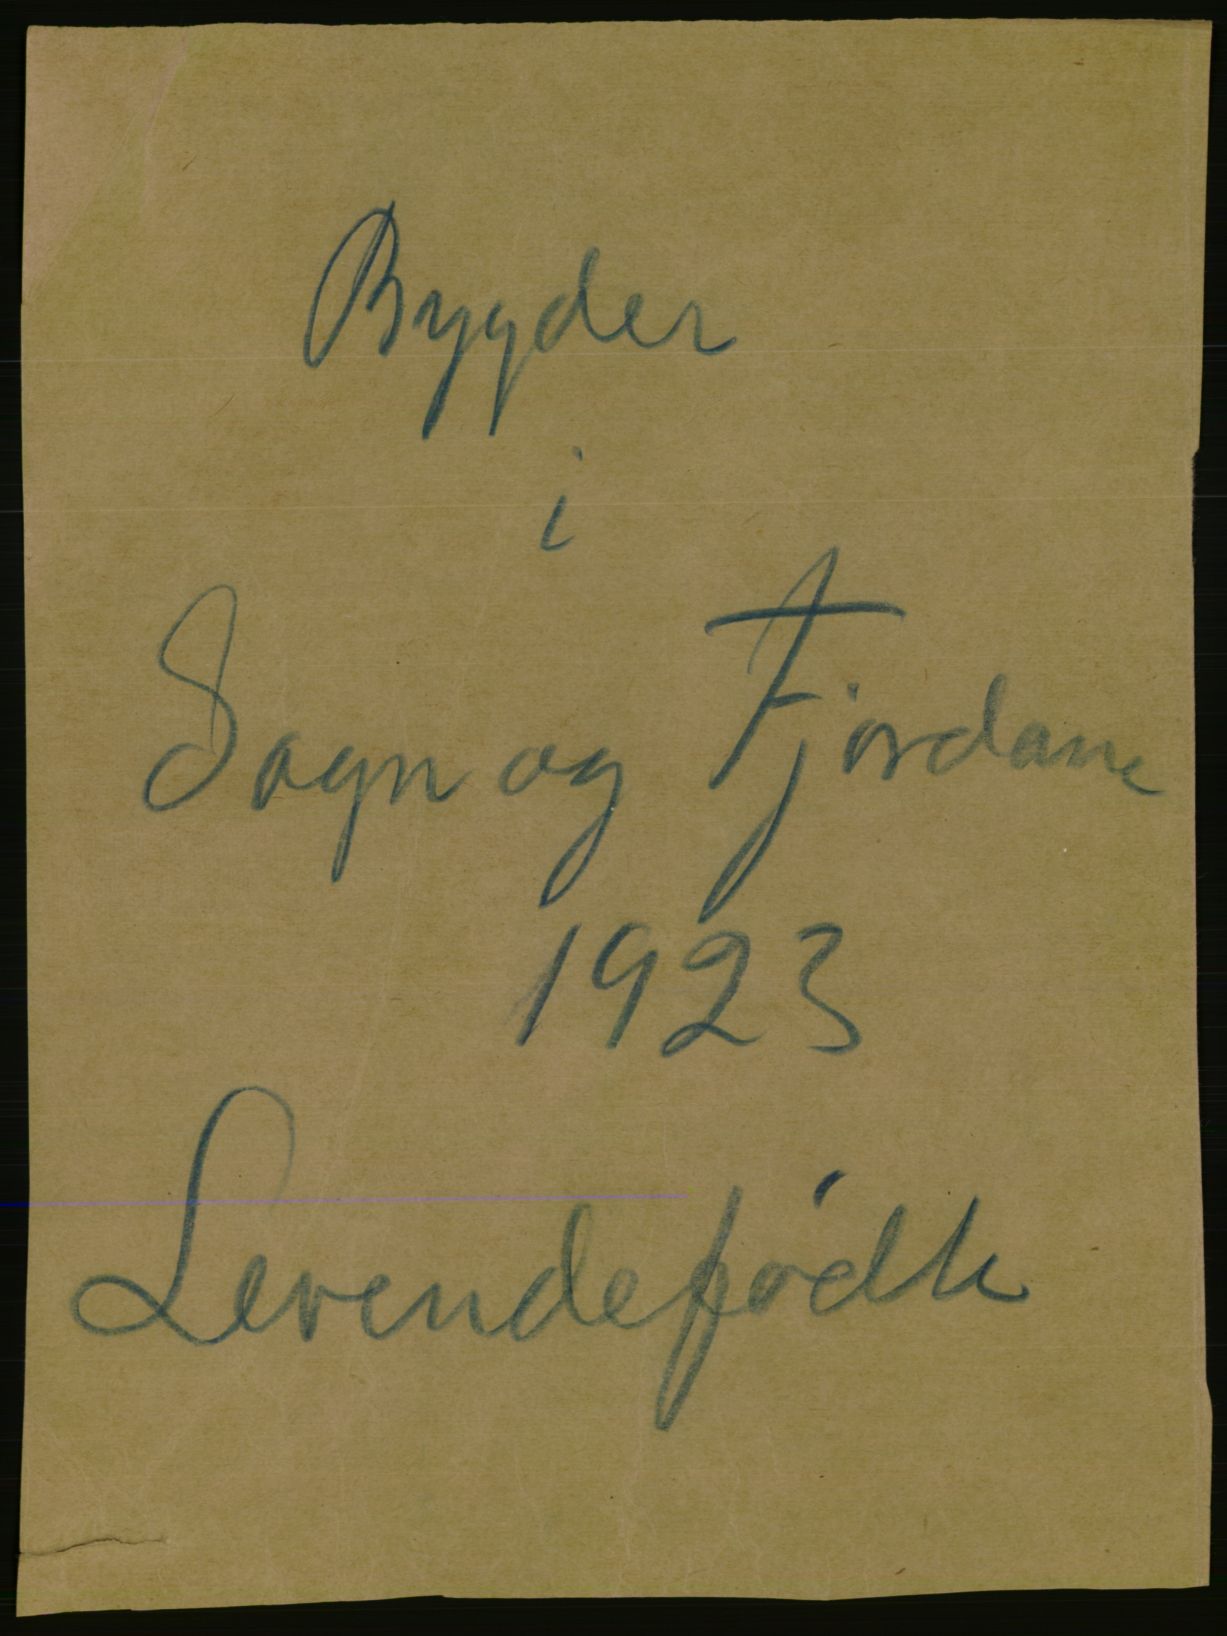 Bygder
i
Sogn og Fjordane
1923
Levendefødte